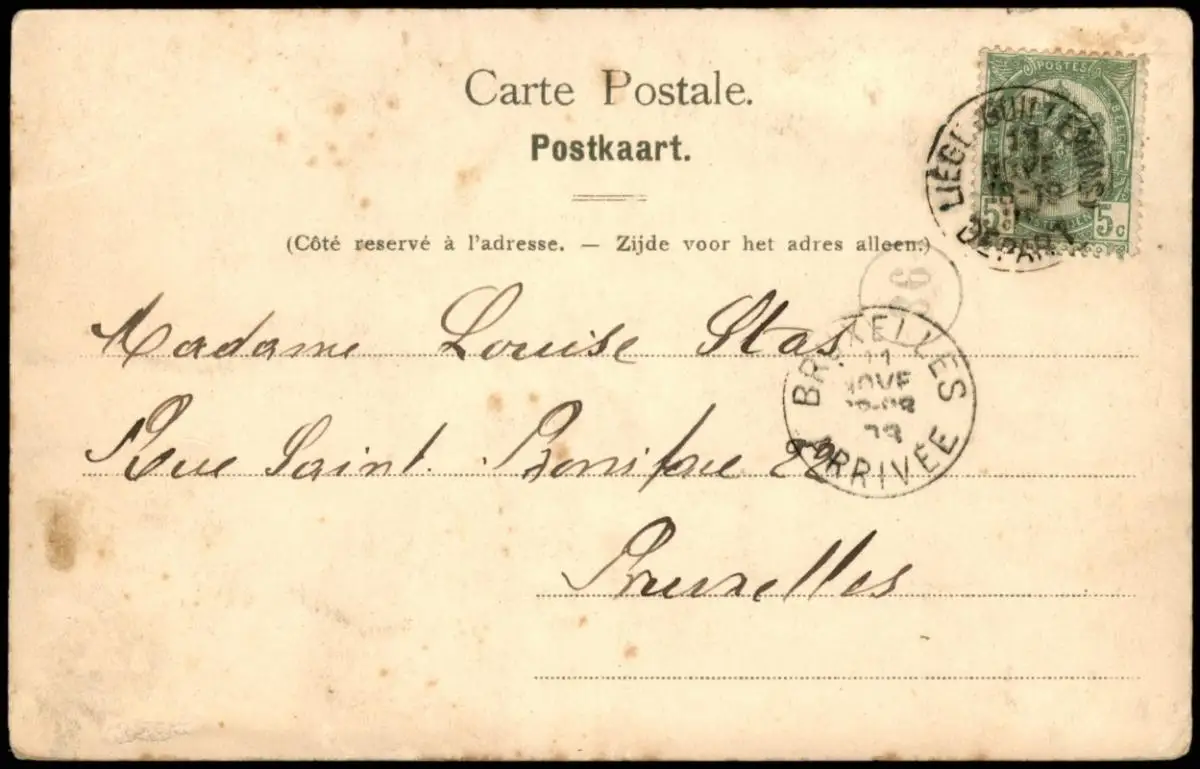 Carte Postale.
Postkaart.
(Côté reservé à l'adresse. — Zijde voor het adres alleen.)
POSTES
5c 5c
LIÉGE-GUILLEMINS
11
NOVE
DÉPART
86
BRUXELLES
11
NOVE
ARRIVÉE
Madame Louise Stas
Rue Saint Boniface 22
Bruxelles